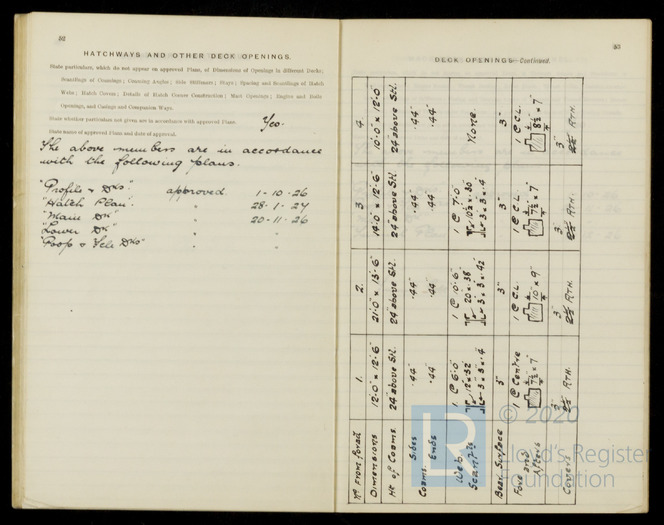 52
HATCHWAYS AND OTHER DECK OPENINGS.
State particulars, which do not appear on approved Plans, of Dimensions of Openings in different Decks;
Scantlings of Coamings; Coaming Angles; Side Stiffeners; Stays; Spacing and Scantlings of Hatch
Webs; Hatch Covers; Details of Hatch Corner Construction; Mast Openings; Engine and Boiler
Openings, and Casings and Companion Ways.
State whether particulars not given are in accordance with approved Plans. Yes.
State name of approved Plans and date of approval.
The above members are in accordance
with the following plans.
"Profile & Dks". approved 1-10-26
"Hatch Plan". " 28-1-27
"Main Dk" " 20-11-26
"Lower Dk" " "
"Poop & Fcle Dks" " "
53
DECK OPENINGS—Continued.
No From for'd 1. 2. 3 4
Dimensions 12'.0" × 12'.6" 21'.0" × 13'.6" 14'.0" × 12'.6" 10'.0" × 12'.0"
Ht of Coams. 24" above Sh. 24" above Sh. 24" above Sh. 24" above Sh.
Coams. Sides .44" .44" .44" .44"
Ends .44" .44" .44" .44"
Web 1 @ 6'.0" 1 @ 10'.6" 1 @ 7'.0" None.
Scantgs 12" × .32 20" × .38 10½ × .30
3 × 3 × .4 3 × 3 × .42 3 × 3 × .4
Bear. Surface 3" 3" 3" 3"
Fore and Afters 1 @ Centre 1 @ CL 1 @ CL 1 @ CL
7½ × 7" 10 × 9" 7½ × 7" 8½ × 7"
Covers 3 3 3 3
© 2020
LR
Lloyd's Register
Foundation